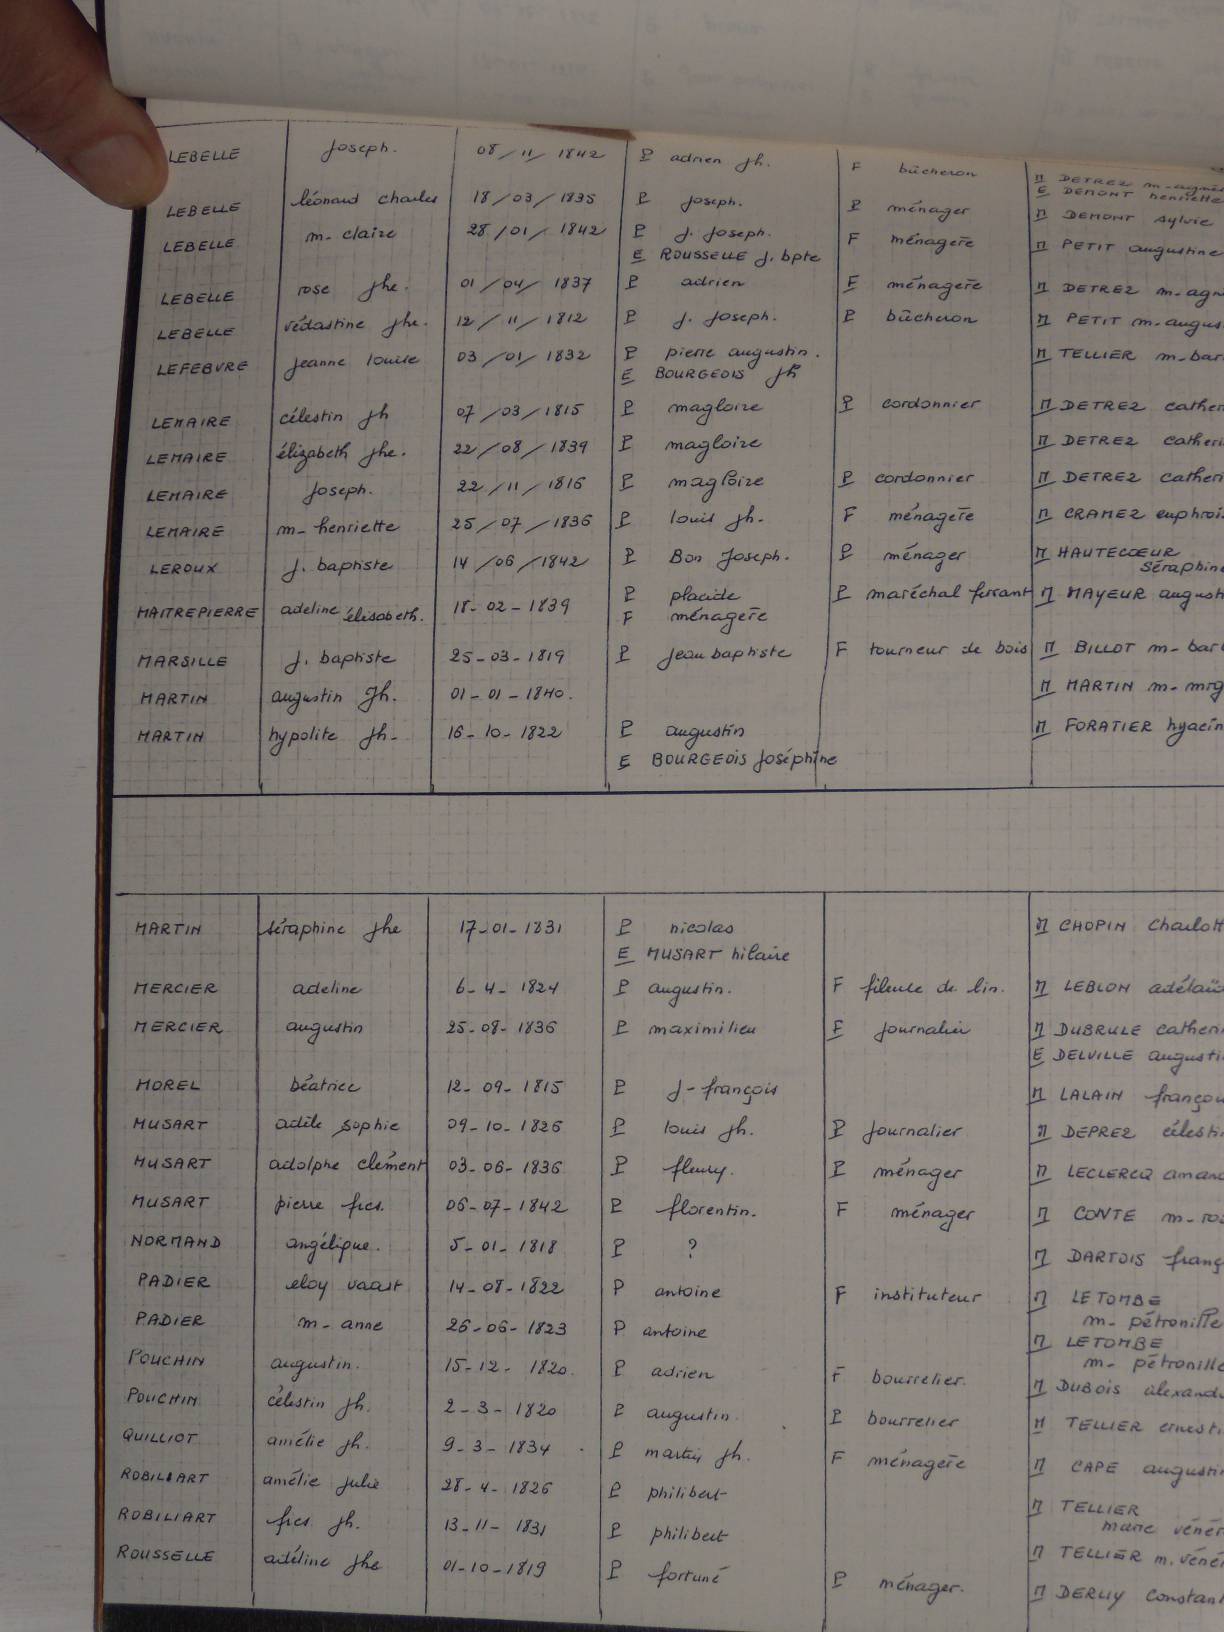 LEBELLE joseph. 08/11/1842 P adrien jh. F bûcheron M DETREZ
E DEMONT henriette
LEBELLE léonard charles 18/03/1835 P joseph. P ménager M DEMONT sylvie
LEBELLE m-claire 28/01/1842 P j. joseph. F ménagère M PETIT augustine
E ROUSSELLE j. bpte
LEBELLE rose jhe. 01/04/1837 P adrien F ménagère M DETREZ
LEBELLE védastine jhe. 12/11/1812 P j. joseph. P bûcheron M PETIT
LEFEBVRE jeanne louise 03/01/1832 P pierre augustin. M TELLIER
E BOURGEOIS jh
LEMAIRE célestin jh 07/03/1815 P magloire P cordonnier M DETREZ
LEMAIRE élizabeth jhe. 22/08/1839 P magloire M DETREZ
LEMAIRE joseph. 22/11/1816 P magloire P cordonnier M DETREZ
LEMAIRE m-henriette 25/07/1836 P louis jh. F ménagère M CRAMEZ
LEROUX j. baptiste 14/06/1842 P Bon Joseph. P ménager M HAUTECŒUR
séraphine
MAITREPIERRE adeline élisabeth. 18-02-1839 P placide P maréchal ferrant M MAYEUR
F ménagère
MARSILLE j. baptiste 25-03-1819 P jean baptiste F tourneur de bois M BILLOT
MARTIN augustin Jh. 01-01-1840. M MARTIN
MARTIN hypolite jh- 16-10-1822 P augustin M FORATIER
E BOURGEOIS joséphine
MARTIN séraphine jhe 17-01-1831 P nicolas M CHOPIN
E MUSART hilaire
MERCIER adeline 6-4-1824 P augustin. F fileuse de lin. M LEBLON
MERCIER augustin 25-08-1836 P maximilien F journalier M DUBRULE
E DELVILLE
MOREL béatrice 12-09-1815 P j-françois M LALAIN
MUSART adèle sophie 09-10-1826 P louis jh. P journalier M DEPREZ
MUSART adolphe clément 03-06-1836 P fleury. P ménager M LECLERCQ
MUSART pierre fres. 06-07-1842 P florentin. F ménager M CONTE
NORMAND angélique. 5-01-1818 P ? M DARTOIS
PADIER eloy vaast 14-08-1822 P antoine F instituteur M LETOMBE
m- pétronille
PADIER m-anne 26-06-1823 P antoine M LETOMBE
m- pétronille
POUCHIN augustin. 15-12-1820. P adrien F bourrelier. M DUBOIS
POUCHIN célestin jh. 2-3-1820 P augustin. P bourrelier M TELLIER
QUILLIOT amélie jh. 9-3-1834 P martin jh. F ménagère M CAPE
ROBILIART amélie julie 28-4-1826 P philibert M TELLIER
marie
ROBILIART fres. jh. 13-11-1831 P philibert M TELLIER
ROUSSELLE adéline jhe 01-10-1819 P fortuné P ménager. M DERUY